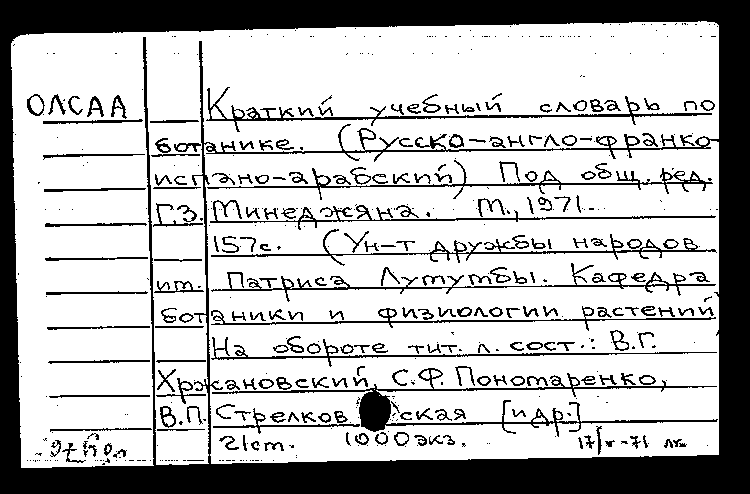 ОЛСАА Краткий учебный словарь по
ботанике. (Русско-англо-франко-
испано-арабский) Под общ. ред.
Г.З. Минеджяна. М., 1971.
157с. (Ун-т дружбы народов
им. Патриса Лумумбы. Кафедра
ботаники и физиологии растений
На обороте тит. л. сост.: В.Г.
Хржановский, С.Ф. Пономаренко,
В.П. Стрелковская [и др.]
21см. 1000экз.